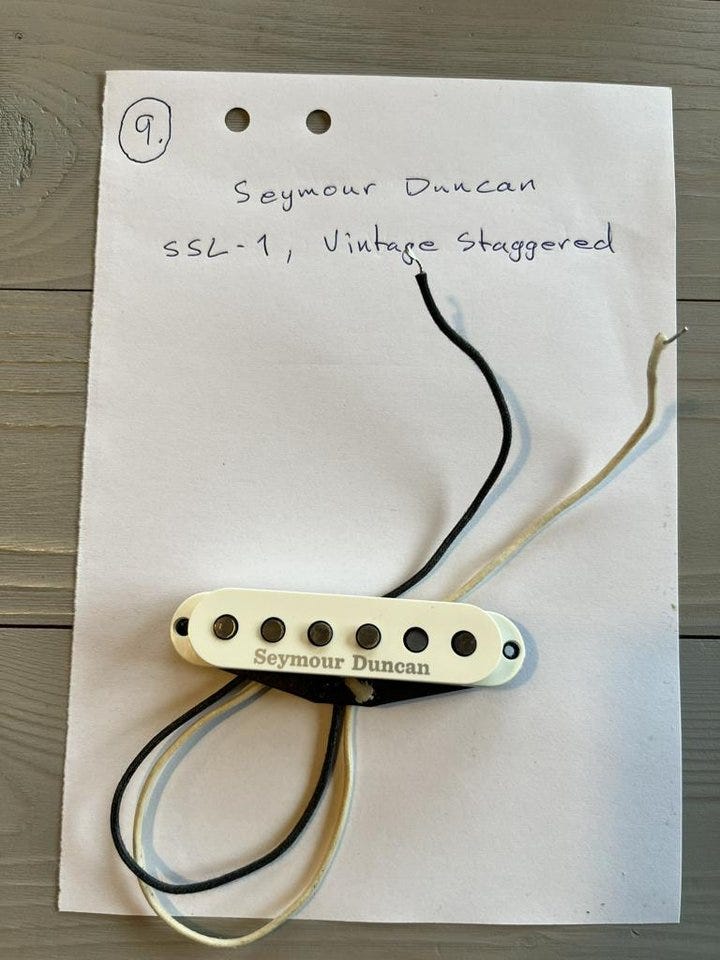 9.
Seymour Duncan
SSL-1, Vintage Staggered
Seymour Duncan